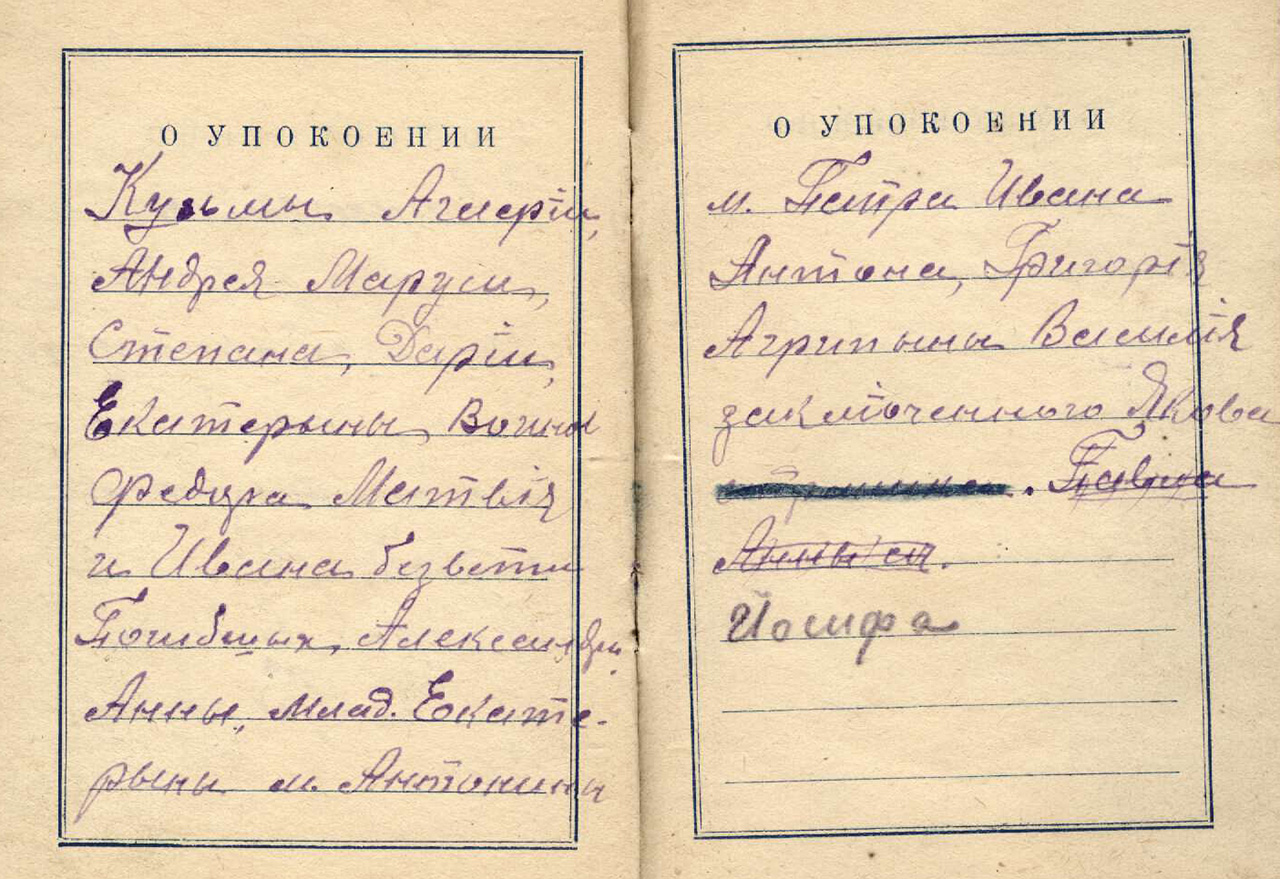 О УПОКОЕНИИ
Кузьмы Агаерiи,
Андрея Маруси,
Степана, Дарiи,
Екатерыны Воина
Федора Матвiя
и Ивана безвѣсти
Погибшых, Александры.
Анны, млад. Екате-
рыны м. Антонины
О УПОКОЕНИИ
м. Петра Ивана
Антона, Григорiя
Агрипыны Василiя
заключенного Якова
. Павла
Анны
Иосифа